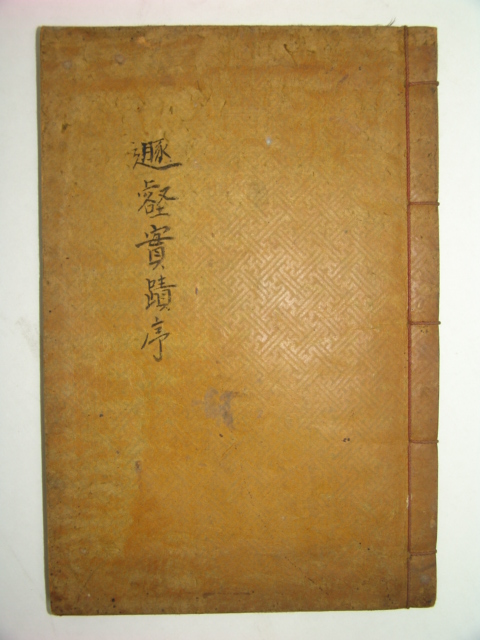 遯壑實蹟序